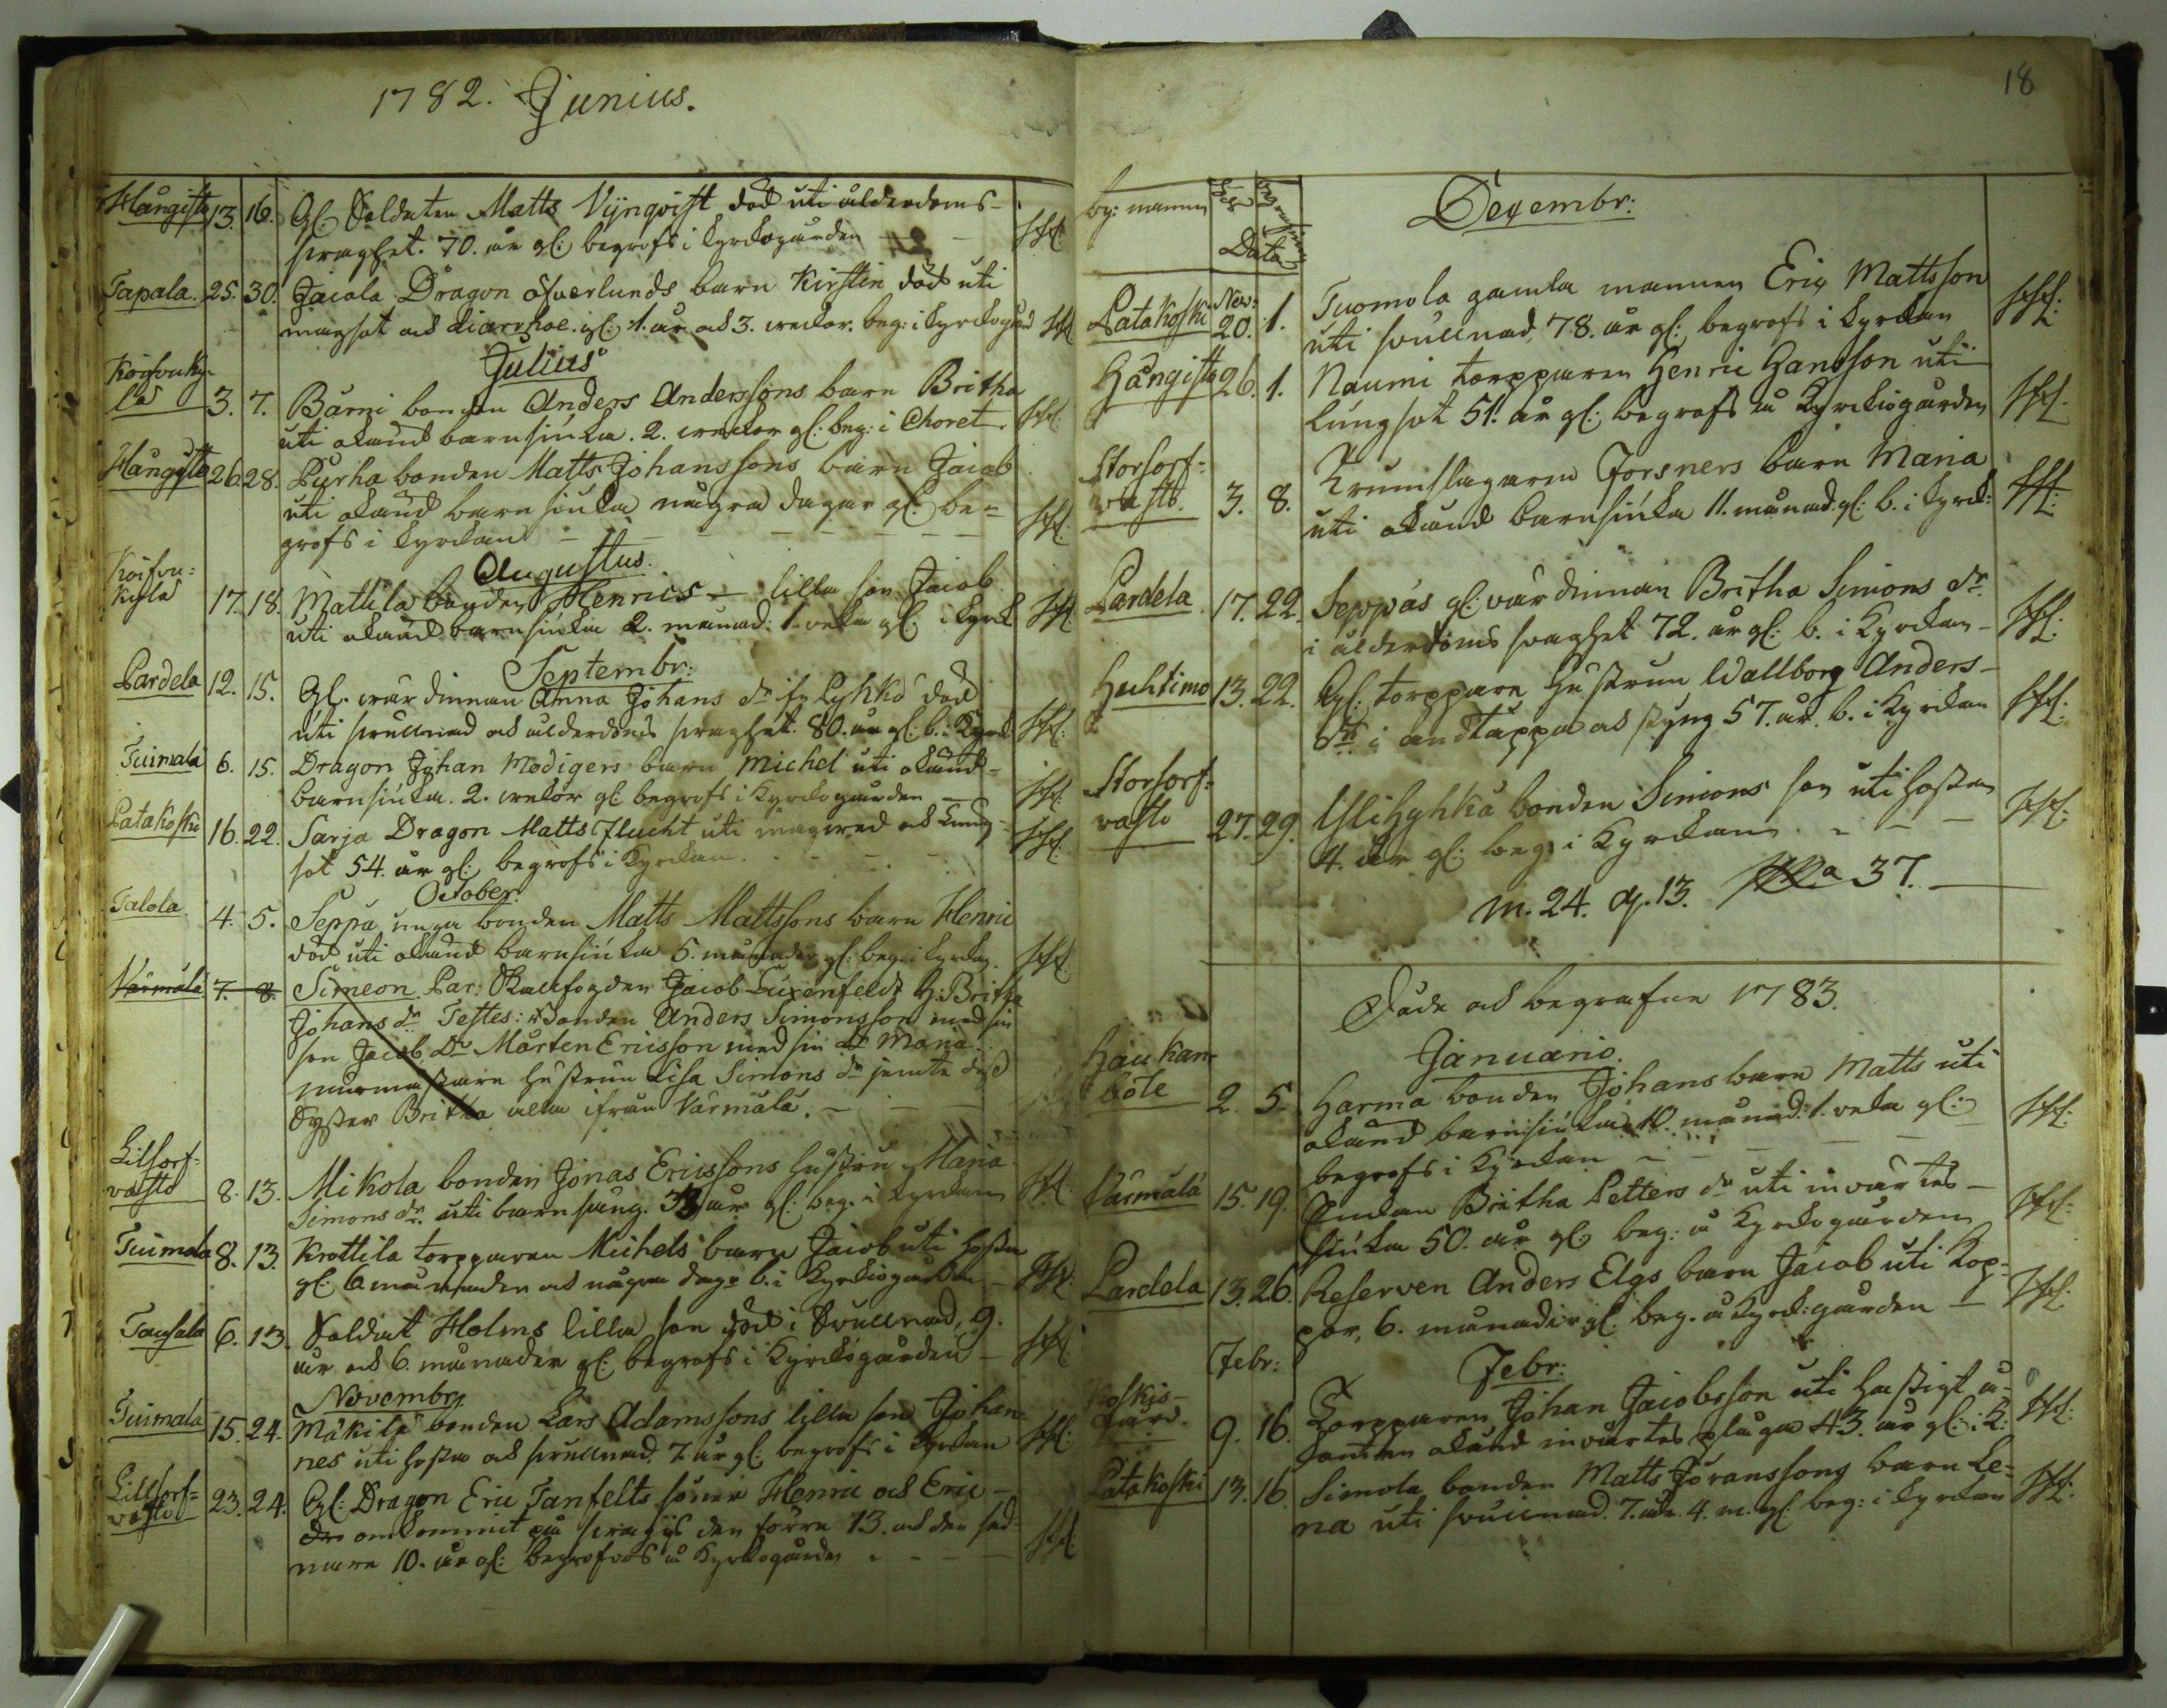 1782. Junius.
Hångisto 13. 16. Gl: Soldaten Matts Vijnqvist död uti ålderdoms-
svaghet. 70. år gl: begrofs i kyrkogården
Tapala. 25. 30. Jacola Dragon Öfverlunds barn Kirstin död uti
magsot och diarrhoe. gl: 1. år och 3. weckor. beg: i kyrkogård
Julius
Koivuky-
lä 3. 7. Bärni bonden Anders Anderssons barn Britha
uti okänd barnsiuka. 2. weckor gl: beg: i Choret.
Hångisto 26. 28. Purha bonden Matts Johanssons barn Jacob
uti okänd barnsiuka några dagar gl: be-
grofs i kyrkan
Augustus.
Koivu-
kylä 17. 18. Mattila bonden Henrics lilla son Jacob
uti okänd barnsiuka 2. månad: 1. veka gl: i kyrk
Septembr:
Pardela 12. 15. Gl. värdinnan Anna Johans dr död
uti svullnad och ålderdoms svaghet. 80. år gl: b. i Kyrk
Tuimala 6. 15. Dragon Johan Modigers barn Michel uti okänd
barnsiuka. 2. wekor gl: begrofs i Kyrkogården
Latakoski 16. 22. Sarja Dragon Matts Flucht uti och lung-
sot 54. år gl: begrofs i Kyrkan.
October.
Talola 4. 5. Seppä unga bonden Matts Mattssons barn Henric
död uti okänd barnsiuka 5. månader gl: beg: i kyrkan.
Värmälä 7. 8. Simeon. Par: Skallfogden Jacob Luxenfeldt H: Britha
Johans dr Testes: Bonden Anders Simonsson med sin
son Jacob. Dr Mårten Ericsson med sin dr Maria.
hustrun Lisa Simons dr jemte dess
Syster Britha alla ifrån Värmälä.
Lillsorf-
vasto 8. 13. Mikola bonden Jonas Ericssons hustru Maria
Simons dr. uti barnsäng. år gl: beg: i kyrkan
Tuimala 8. 13. Krottila torpparen Michels barn Jacob uti hosta
gl: 6 månader och några dag: b. i Kyrkiogården
6. 13. Soldat Holms lilla son död i Svullnad, 9.
år och 6. månader gl: begrofs i Kyrkogården
Novembr:
Tuimala 15. 24. Mäkilä bonden Lars Adamssons lilla son Johan-
nes uti hosta och svullnad. 7. år gl: begrofs i kyrkan
Lillsorf-
vasto 23. 24. Gl: Dragon Eric Tanfelts söner Henric och Eric
omkommit på svag is den förra 13. och den sed-
nare 10. år gl: begrofvos å Kyrkogården
18
by: namn död begrafne Data
Decembr:
Latakoski Nov: 20. 1. Tuomola gamla mannen Eric Mattsson
uti svullnad, 78. år gl: begrofs i Kyrkan
Hångisto 26. 1. Naumi torpparen Henric Hansson uti
lungsot 51. år gl: begrofs å Kyrckogården
Storsorf-
vasto. 3. 8. Trumslagaren Forsners barn Maria
uti okänd barnsiuka 11. månad: gl: b. i kyrk:
Pardela 17. 22. Seppäs gl: värdinnan Britha Simons dr
i ålderdoms svaghet 72. år gl: b. i Kyrkan
Huhtimo 13. 22. Gl: torppare hustrun Wallborg Anders-
dr: i andtäppa och styng 57. år. b. i Kyrkan
Storsorf-
vasto 27. 29. Ylihyhkä bonden Simons son uti hosta
4. år gl: beg: i Kyrkan
m. 24. q. 13. Sa 37.
Döde och begrafne 1783.
Januario.
Haukan-
böle 2. 5. Harma bonden Johans barn Matts uti
okänd barnsiuka 10. månad: 1. veka gl:
begrofs i Kyrkan
Värmälä 15. 19. Enkan Britha Petters dr uti invärtes
siuka 50. år gl: beg: å Kyrkogården
Pardela 13. 26. Reserven Anders Elgs barn Jacob uti Kop-
por, 6. månader gl: beg. å Kyrk:gården
Febr: Febr:
Koskis-
gård. 9. 16. Torpparen Johan Jacobsson uti hastigt å-
kommen okänd invärtes plåga 43. år gl: i K:
Latakoski 13. 16. Simola bonden Matts Göranssons barn Le-
na uti svullnad. 7. år. 4. m. gl: beg: i kyrkan